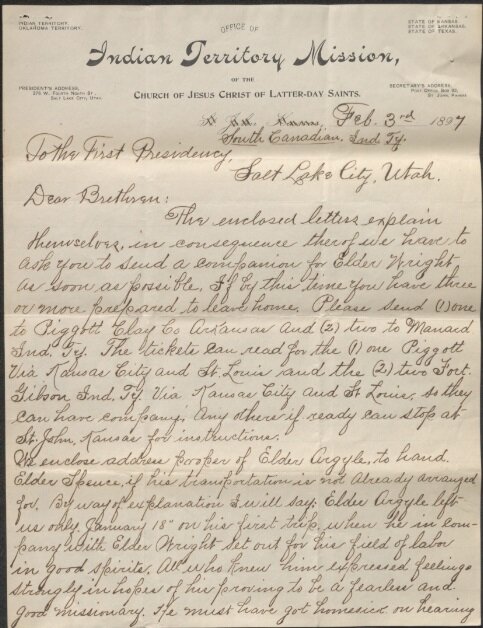 INDIAN TERRITORY,
OKLAHOMA TERRITORY.
STATE OF KANSAS,
STATE OF ARKANSAS,
STATE OF TEXAS.
OFFICE OF
Indian Territory Mission,
OF THE
CHURCH OF JESUS CHRIST OF LATTER-DAY SAINTS.
PRESIDENT'S ADDRESS,
SALT LAKE CITY, UTAH.
SECRETARY'S ADDRESS,
ST. JOHN, KANSAS
Feb. 3rd 1897
South Canadian, Ind. Ty.
To the First Presidency,
Salt Lake City, Utah.
Dear Brethren:
The enclosed letters explain
themselves, in consequence therof we have to
ask you to send a companion for Elder Wright,
as soon as possible. If by this time you have three
or more prepared to leave home. Please send (1) one
to Piggott Clay Co Arkansas and (2) two to Manard
Ind. Ty. The tickets can read for the (1) one Piggott
Via Kansas City and St. Louis and the (2) two Fort.
Gibson Ind. Ty. Via Kansas City and St Louis, so they
can have company; Any others if ready can stop at
St. John, Kansas for instructions.
We enclose address of Elder Argyle, to hand
Elder Spence, if his transportation is not already arranged
for. By way of explanation I will say; Elder Argyle left
us only January 18" on his first trip, when he in com-
pany with Elder Wright set out for his field of labor
in good spirits. All who knew him expressed feelings
strongly in hopes of his proving to be a fearless and
good missionary. He must have got homesick on hearing